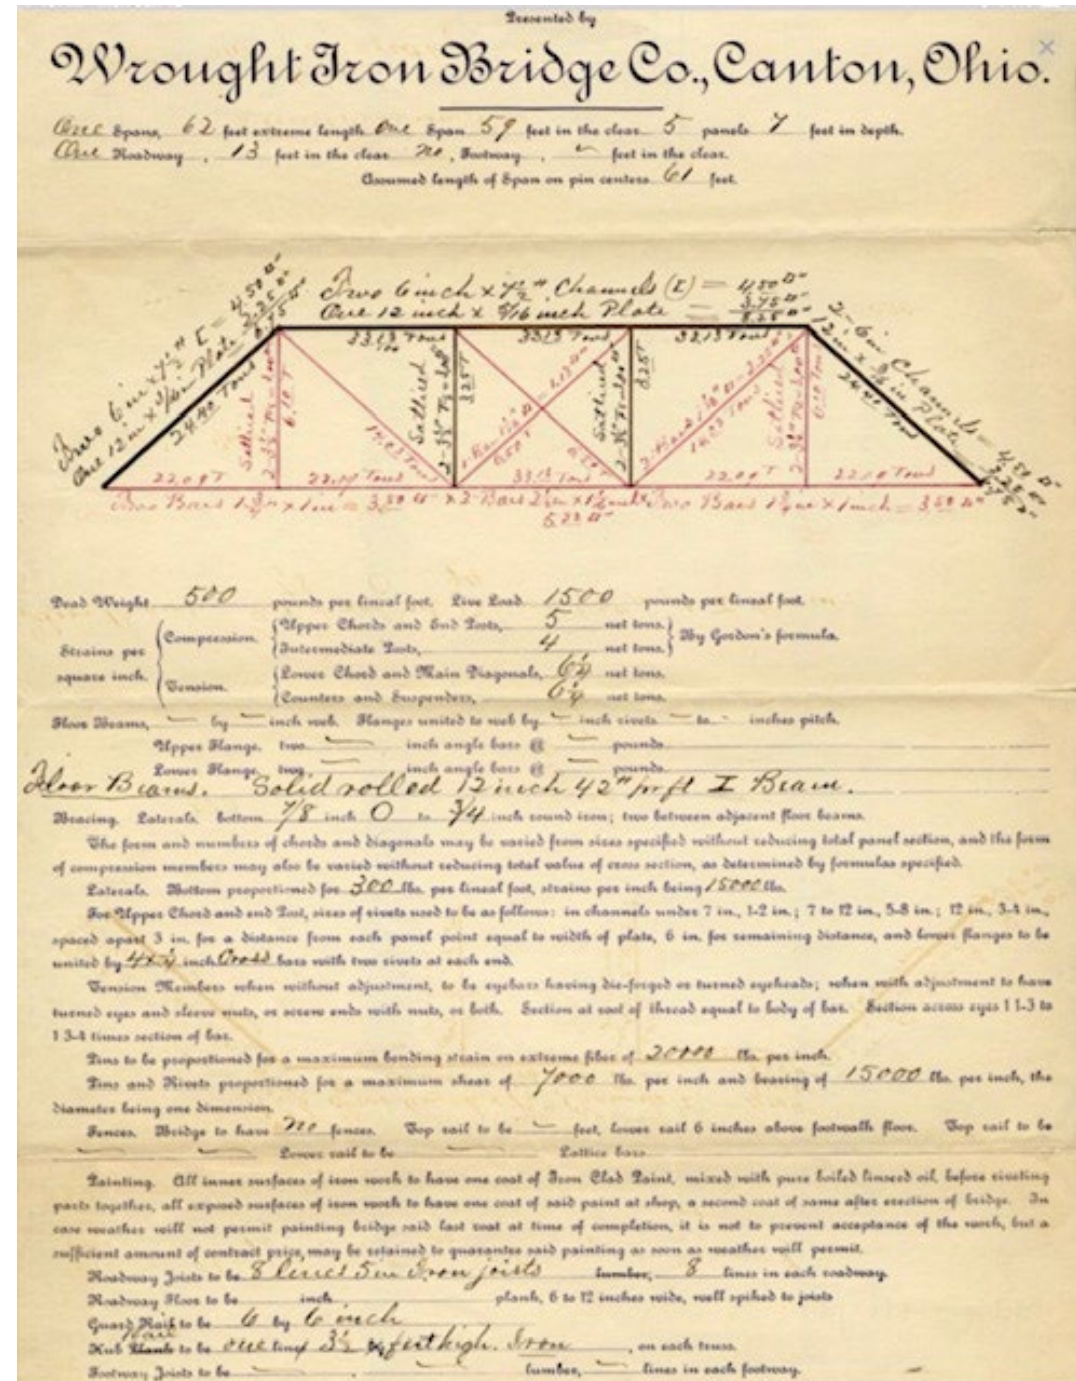 Presented by
Wrought Iron Bridge Co., Canton, Ohio.
One Spans, 62 feet extreme length One Span 59 feet in the clear 5 panels 7 feet in depth.
One Roadway, 13 feet in the clear no, Footway, feet in the clear.
Assumed length of Span on pin centers 61 feet.
Two 6 inch x 7½" Channels (I) = 4.50 □"
One 12 inch x 5/16 inch Plate = 3.75 □"
8.25 □"
Two 6 in x 7½" [ = 4.50 □"
One 12 in x 3/16 in Plate 2.25 □"
2 - 6 in Channels = 4.50
12 in x 3/16 in Plate 2.25
33.13 Tons
33.13 Tons
33.13 Tons
24.40 Tons
24.40 Tons
Latticed
Latticed
Latticed
Latticed
3.25 T
3.25 T
14.03 Tons
14.03 Tons
22.09 T
22.09 Tons
33.13 Tons
22.09 T
22.09 Tons
Two Bars 1¾ in x 1 in = 3.50 □"
2 Bars
Two Bars 1¾ in x 1 inch = 3.50 □"
Dead Weight 500 pounds per lineal foot. Live Load 1500 pounds per lineal foot.
Strains per square inch.
Compression. Upper Chords and End Posts, 5 net tons.
Intermediate Posts, 4 net tons. By Gordon's formula.
Tension. Lower Chord and Main Diagonals, 6¼ net tons.
Counters and Suspenders, 6¼ net tons.
Floor Beams, by inch web. Flanges united to web by inch rivets to inches pitch.
Upper Flange, two inch angle bars @ pounds
Lower Flange, two inch angle bars @ pounds
Floor Beams. Solid rolled 12 inch 42# pr ft I Beam.
Bracing. Laterals, bottom 7/8 inch O to 3/4 inch round iron; two between adjacent floor beams.
The form and numbers of chords and diagonals may be varied from sizes specified without reducing total panel section, and the form
of compression members may also be varied without reducing total value of cross section, as determined by formulas specified.
Laterals. Bottom proportioned for 300 lbs. per lineal foot, strains per inch being 15000 lbs.
For Upper Chord and end Post, sizes of rivets used to be as follows: in channels under 7 in., 1-2 in.; 7 to 12 in., 5-8 in.; 12 in., 3-4 in.,
spaced apart 3 in. for a distance from each panel point equal to width of plate, 6 in. for remaining distance, and lower flanges to be
united by inch Cross bars with two rivets at each end.
Tension Members when without adjustment, to be eyebars having die-forged or turned eyeheads; when with adjustment to have
turned eyes and sleeve nuts, or screw ends with nuts, or both. Section at root of thread equal to body of bar. Section across eyes 1 1-3 to
1 3-4 times section of bar.
Pins to be proportioned for a maximum bending strain on extreme fiber of 20000 lbs. per inch.
Pins and Rivets proportioned for a maximum shear of 7000 lbs. per inch and bearing of 15000 lbs. per inch, the
diameter being one dimension.
Fences. Bridge to have no fences. Top rail to be feet, lower rail 6 inches above footwalk floor. Top rail to be
Lower rail to be Lattice bars
Painting. All inner surfaces of iron work to have one coat of Iron Clad Paint, mixed with pure boiled linseed oil, before riveting
parts together, all exposed surfaces of iron work to have one coat of said paint at shop, a second coat of same after erection of bridge. In
case weather will not permit painting bridge said last coat at time of completion, it is not to prevent acceptance of the work, but a
sufficient amount of contract price, may be retained to guarantee said painting as soon as weather will permit.
Roadway Joists to be 8 lines 5 in Iron joists lumber, 8 lines in each roadway.
Roadway Floor to be inch plank, 6 to 12 inches wide, well spiked to joists
Guard Rail to be 6 by 6 inch
Hub Plank Rail to be one line 3½ feet high. Iron, on each truss.
Footway Joists to be lumber, lines in each footway.